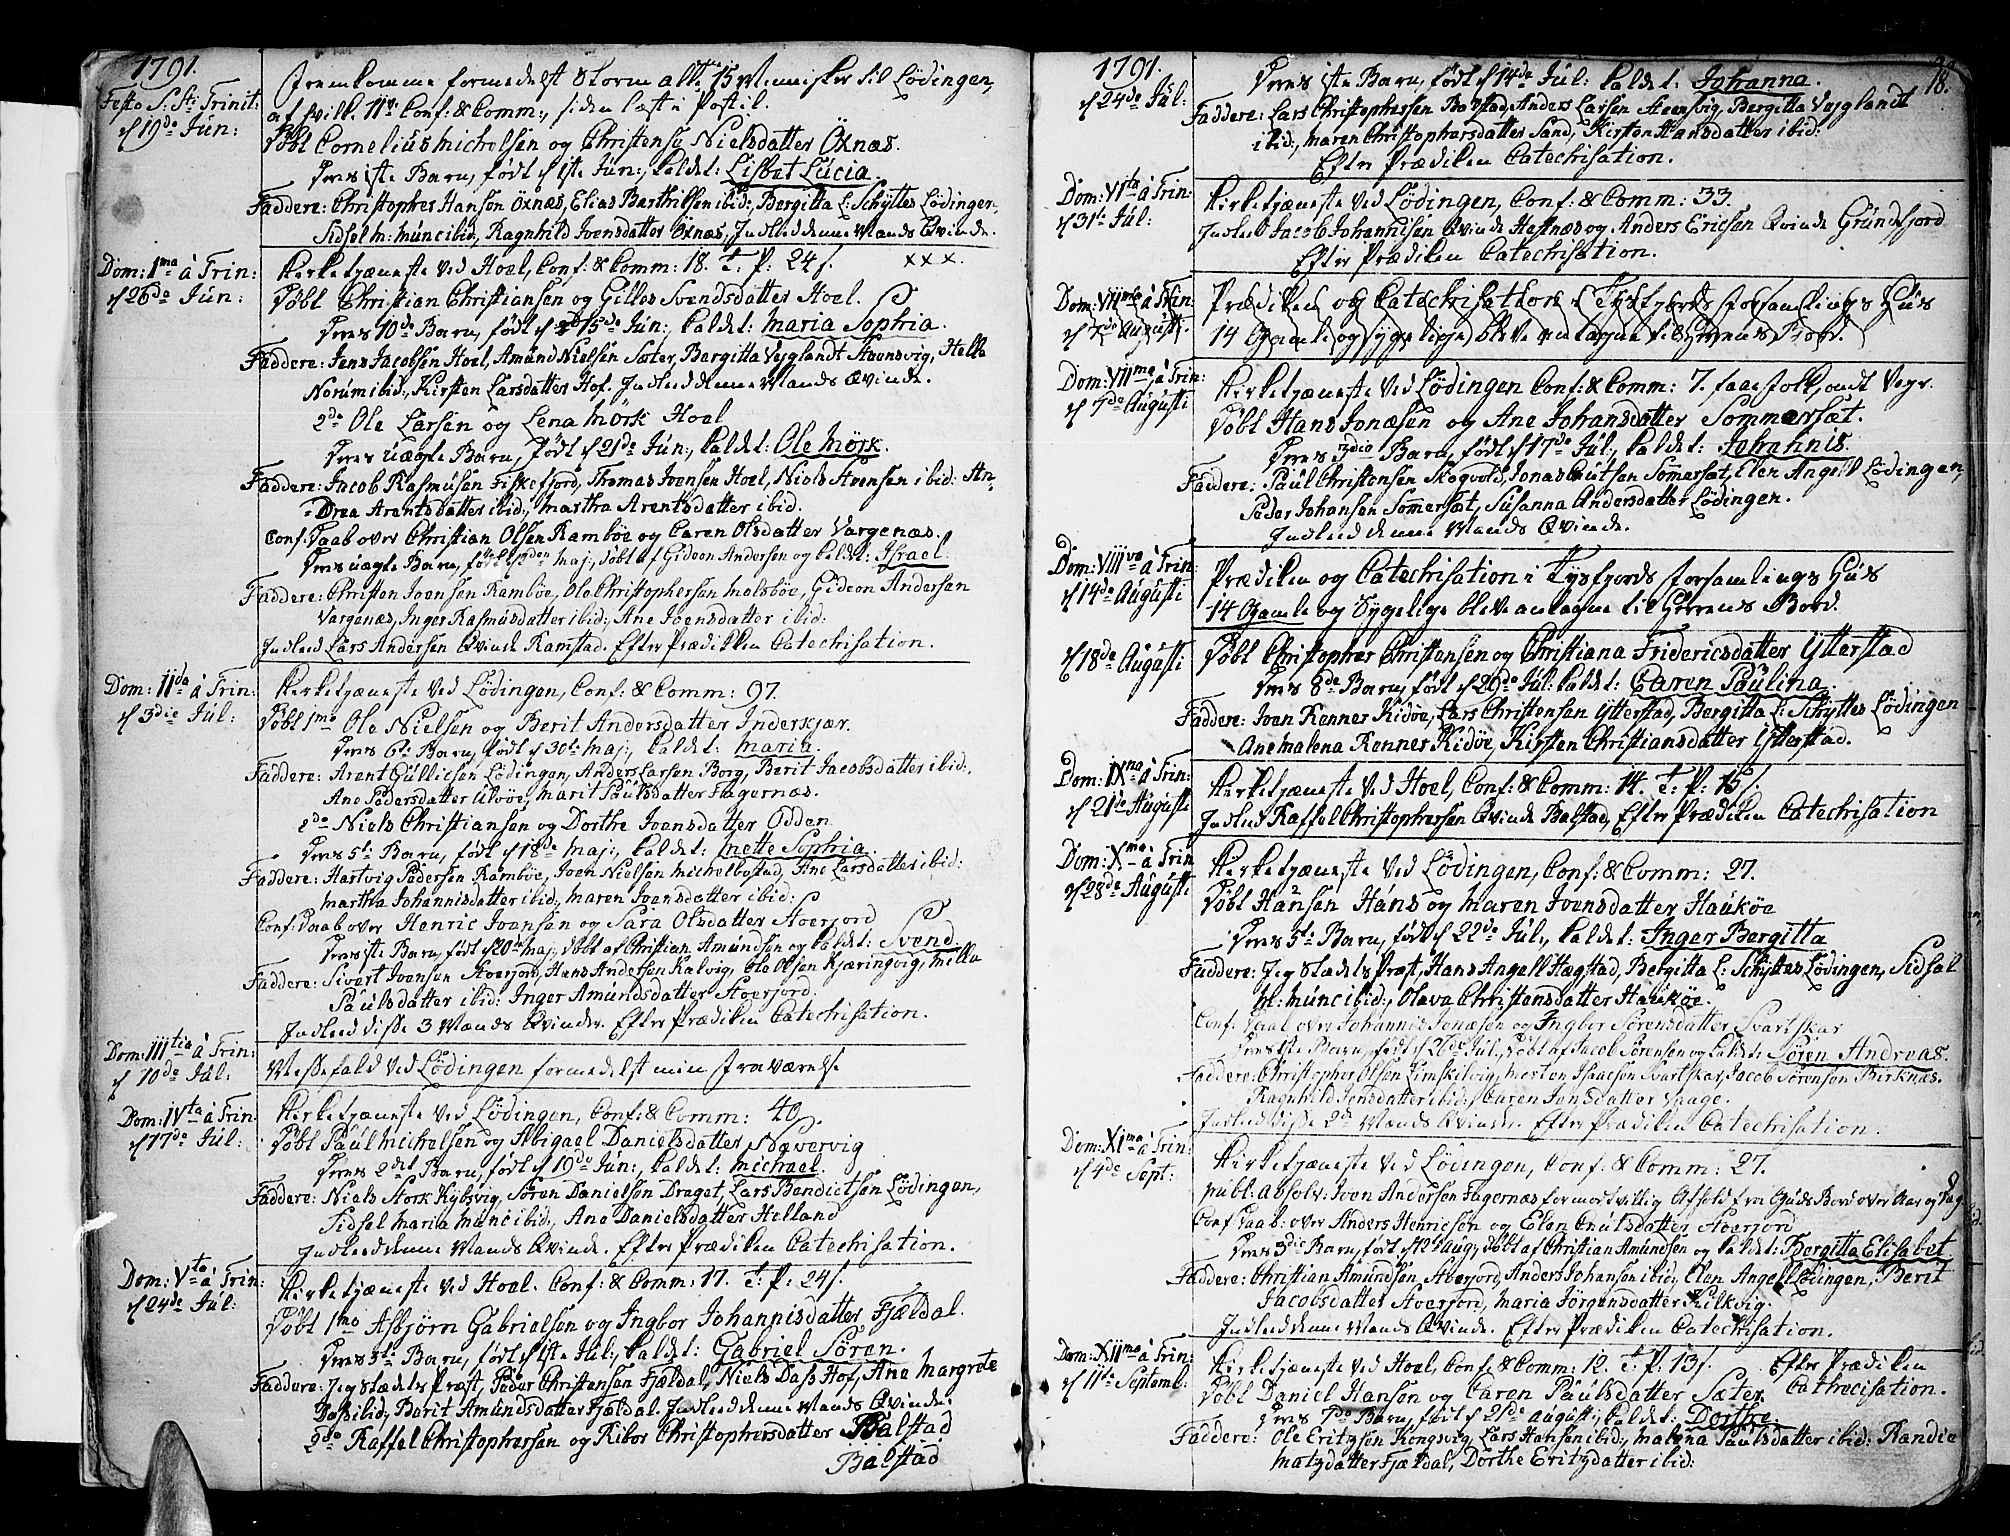 1791.
Festo S: Sti Trinit:
d 19de Jun:
Fremkomme formedelst Storm alt 15 Mennisker til Lödingen,
af hvilk. 11ve Conf: & Comm:, siden læste Postil.
Döbt Cornelius Michelsen og Christense Nielsdatter Öxnæs.
Deres 1ste Barn, född d 1ste Jun:, kaldet: Lisbet Lucia.
Faddere: Christopher Hansön Öxnæs, Elias Barthelsen ibid:, Bergitta L: Schyttes Lödingen,
Sidsel M: Munc ibid:, Ragnhild Ivensdatter Öxnæs, Indleed denne Mands Qvinde.
Dom: 1ma à Trin:
d 26de Jun:
Kirketjæneste ved Hoel, Conf: & Comm: 18. T: P: 24 s. xxx.
Döbt Christian Christiansen og Gilles Svendsdatter Hoel.
Deres 10de Barn, född d 15de Jun:, kaldet: Maria Sophia.
Faddere: Jens Jacobsen Hoel, Amund Nielsen Sæter, Bergitta Vejglandt Steensvig, Helle
Norum ibid:, Kirsten Larsdatter Hof. Indleed denne Mands Qvinde.
2do Ole Larsen og Lena Mörk Hoel
Deres uægte Barn, född d 21de Jun:, kaldet: Ole Mörk.
Faddere: Jacob Rasmusen Fiskefjord, Thomas Ivensen Hoel, Niels Arensen ibid: An-
drea Arentsdatter ibid:, Martha Arentsdatter ibid.
Conf: Daab over Christian Olsen Ramböe og Caren Olsdatter Vargenæs.
Deres uægte Barn, född Maj:, döbt af Gideon Andersen og kaldet: Israel.
Faddere: Christen Ivensen Ramböe, Ole Christophersen Molsböe, Gideon Andersen
Vargenæs, Inger Rasmusdatter ibid:, Ane Ivensdatter ibid:
Indleed Lars Andersen Qvinde Ramstad. Efter Prædikken Catechisation.
Dom: IIda à Trin:
d 3die Jul:
Kirketjæneste ved Lödingen, Conf: & Comm: 97.
Döbt 1mo Ole Nielsen og Berit Andersdatter Inderkjær.
Deres 6te Barn, född d 30te Maj:, kaldet: Maria.
Faddere: Arent Gullicsen Lödingen, Anders Larsen Borg, Berit Jacobsdatter ibid:,
Ane Pedersdatter Ulvöe, Marit Paulsdatter Fagernæs.
2do Niels Christiansen og Dorthe Ivensdatter Odden
Deres 5te Barn, född d 18de Maj:, kaldet: Mette Sophia.
Faddere: Hartvig Pedersen Ramböe, Iven Nielsen Michelbostad, Ane Larsdatter ibid:
Martha Johannisdatter ibid:, Maren Ivensdatter ibid:
Conf: Daab over Henric Ivensen og Sara Olsdatter Stoerjord
Deres 1ste Barn, född d 20de Maj:, döbt af Christian Amundsen og kaldet: Svend
Faddere: Sivert Ivensen Stoerjord, Hans Andersen Kalvig, Ole Olsen Kjæringvig, Mille
Paulsdatter ibid: Inger Amundsdatter Stoerjord:
Indleed disse 3 Mænds Qvinder. Efter Prædiken Catechisation.
Dom: IIItia à Trin:
d 10de Jul:
Messefald ved Lödingen formedelst min Fraværelse
Dom: IVta à Trin:
d 17de Jul:
Kirketjæneste ved Lödingen, Conf: & Comm: 40.
Döbt Paul Michelsen og Abigael Danielsdatter Næverviig
Deres 2det Barn, född d 19de Jun:, kaldet: Michael.
Faddere: Niels Stork Kybsvig, Sören Danielsön Draget, Lars Bendictsön Lödingen,
Sidsel Maria Munc ibid:, Ane Danielsdatter Helland
Indleed denne Mands Qvinde. Efter Prædiken Catechisation.
Dom: Vta à Trin:
d 24de Jul:
Kirketjæneste ved Hoel. Conf: & Comm: 17. T: P: 24 s.
Döbt 1mo Asbjörn Gabrielsen og Ingbor Johannisdatter Fjældal.
Deres 3te Barn, född d 1ste Jul:, kaldet: Gabriel Sören.
Faddere: Jeg Stædets Præst, Peder Christensön Fjældal, Niels Dass Hof, Ane Margrete
Dass ibid:, Berit Amundsdatter Fjældal. Indleed denne Mands Qvinde.
2do Raffel Christophersen og Ribor Christophersdatter Balstad
Balstad
1791.
d 24de Jul:
18.
Deres 1ste Barn, född d 14de Jul: kaldet: Johanna.
Faddere: Lars Christophersen Balstad, Anders Larsen Steensvig, Bergitta Vejglandt
ibid:, Maren Christophersdatter Sand, Kirsten Hansdatter ibid:
Efter Prædiken Catechisation.
Dom: VIta à Trin:
d 31te Jul:
Kirketjæneste ved Lödingen, Conf: & Comm: 33.
Indleed Jacob Johannisen Qvinde Hafnæs og Anders Ericsen Qvinde Grundfjord
Efter Prædiken Catechisation.
Dom: VIIma à Trin:
d 7de Augusti.
Prædiken og Catechisation i Tysfjords Forsamlings Huus
14 Gamle og Sygelige bleve antagne til Herrens Bord.
Dom: VIIma à Trin:
d 7de Augusti
Kirketjæneste ved Lödingen Conf: & Comm: 7. faae Folk, ondt Vejr.
Döbt Hans Jonæsen og Ane Johansdatter Sommersæt.
Deres 3die Barn, född d 17de Jul, kaldet: Johannis.
Faddere: Paul Christensen Skogvold, Jonas Cnutsen Sommersæt, Elen Angell Lödingen,
Peder Johansen Sommersæt, Susanna Andersdatter Lödingen.
Indleed denne Mands Qvinde.
Dom: VIIIva à Trin:
d 14de Augusti
Prædiken og Catechisation i Tysfjords Forsamlings Huus
14 Gamle og Sygelige bleve antagne til Herrens Bord.
d 18de Augusti
Döbt Christopher Christensen og Christiana Fridericsdatter Ytterstad
Deres 8de Barn, född d 29de Jul: kaldet: Caren Paulina.
Faddere: Iven Renner Kidöe, Lars Christensen Ytterstad, Bergitta L: Schyttes Lödingen
Ane Malena Renner Kidöe, Kirsten Christiansdatter Ytterstad.
Dom: IXna à Trin:
d 21de Augusti
Kirketjæneste ved Hoel, Conf: & Comm: 14. T: P: 15 s.
Indleed Raffel Christophersen Qvinde Balstad, Efter Prædiken Catechisation
Dom: Xma à Trin
d 28de Augusti
Kirketjæneste ved Lödingen, Conf: & Comm: 27.
Döbt Hansen Hans og Maren Ivensdatter Hauköe
Deres 5te Barn, född d 22de Jul:, kaldet: Inger Bergitta
Faddere: Jeg Stædets Præst, Hans Angell Hægstad, Bergitta L: Schyttes Lödingen, Sidsel
M: Munc ibid:, Olava Christensdatter Hauköe.
Conf: Daab over Johannis Jonæsen og Ingbor Sörensdatter Svartskar
Deres 1ste Barn, född d 26de Jul:, döbt af Jacob Sörensen og kaldet: Sören Andreas.
Faddere: Christopher Olsen Limskilvig, Morten Isaacsen Svartskar, Jacob Sörensön Birknæs.
Ragnhild Jonsdatter ibid:, Caren Jensdatter Vaage.
Indleed disse 2de Mænds Qvinder. Efter Prædiken Catechisation.
Dom: XIma à Trin:
d 4de Sept:
Kirketjæneste ved Lödingen, Conf: & Comm: 27.
publ: absolv: Iven Andersen Fagernæs for modvillig Afhold fra Guds Bord over Aar og Dag
Conf: Daab: over Anders Henricsön og Elen Cnutsdatter Stoerjord
Deres 3die Barn, född d 12te Aug:, döbt af Christian Amundsen og kaldet: Bergitta Elisabet
Faddere: Christian Amundsön Stoerjord, Anders Johansen ibid:, Elen Angell Lödingen, Berit
Jacobsdatter Stoerjord, Maria Jörgensdatter Fulkvig.
Indleed denne Mands Qvinde. Efter Prædiken Catechisation.
Dom: XIIma à Trin:
d 11te Septemb:
Kirketjæneste ved Hoel, Conf: & Comm: 12. T: P: 13 s. Efter Prædiken
Döbt Daniel Hansen og Caren Paulsdatter Sæter. Cathecisation.
Deres 7de Barn, född d 21de Augusti:, kaldet: Dorthe.
Faddere: Ole Eritzsön Kongsvig, Lars Hansen ibid:, Malena Paulsdatter ibid: Randie
Matzdatter Fjældal, Dorthe Eritzdatter ibid: